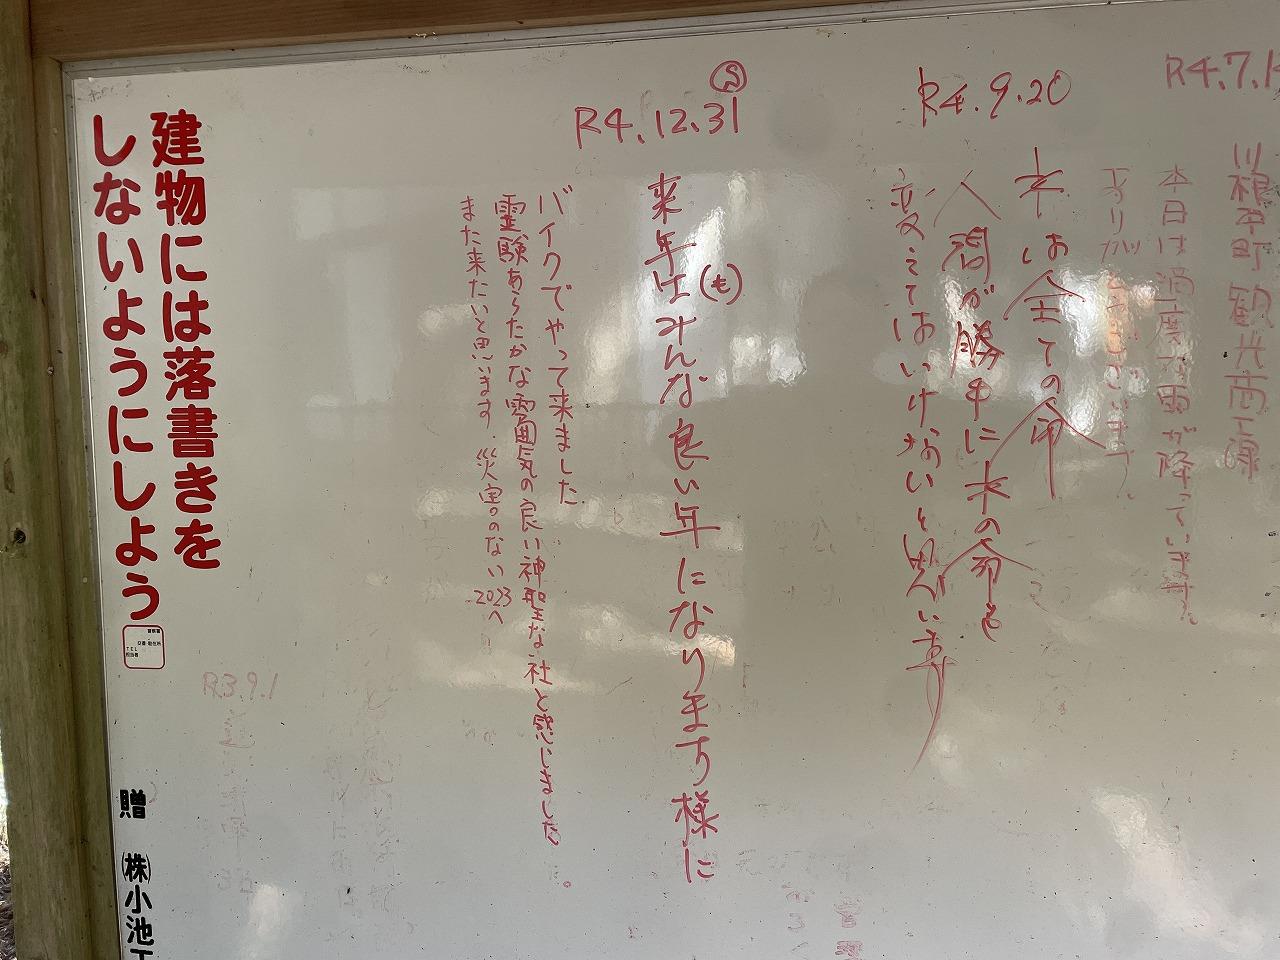 建物には落書きを
しないようにしよう
贈 ㈱小池工
R4.7.1
川根本町 観光商工課
本日は適度な雨が降っています。
ありがとうございます。
R4.9.20
水は全ての命
人間が勝手に水の命も
変えてはいけないと思います
R4.12.31
来年は(も)みんな良い年になりますち様に
バイクでやって来ました
霊験あらたかな雰囲気の良い神聖な社と感じました。
また来たいと思います。災害のない2023へ
R.3.9.1